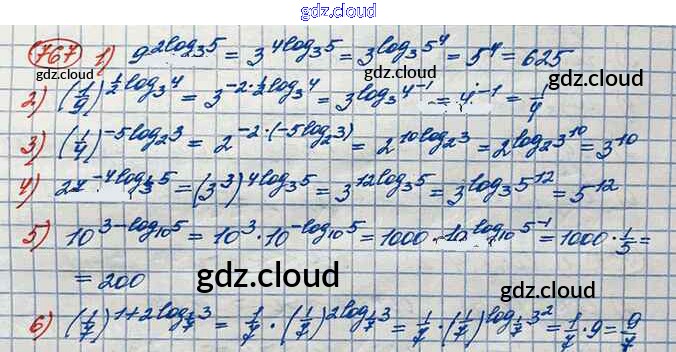 gdz.cloud
767 1) 9^{2log_3 5} = 3^{4log_3 5} = 3^{log_3 5^4} = 5^4 = 625
gdz.cloud gdz.cloud
2) (1/9)^{1/2 log_3 4} = 3^{-2·1/2 log_3 4} = 3^{log_3 4^{-1}} = 4^{-1} = 1/4
3) (1/4)^{-5log_2 3} = 2^{-2·(-5log_2 3)} = 2^{10log_2 3} = 2^{log_2 3^{10}} = 3^{10}
4) 27^{-4log_{1/3} 5} = (3^3)^{4log_3 5} = 3^{12log_3 5} = 3^{log_3 5^{12}} = 5^{12}
5) 10^{3-log_{10} 5} = 10^3 · 10^{-log_{10} 5} = 1000 · 10^{log_{10} 5^{-1}} = 1000 · 1/5 =
= 200
gdz.cloud gdz.cloud
6) (1/7)^{1+2log_{1/7} 3} = 1/7 · (1/7)^{2log_{1/7} 3} = 1/7 · (1/7)^{log_{1/7} 3^2} = 1/7 · 9 = 9/7